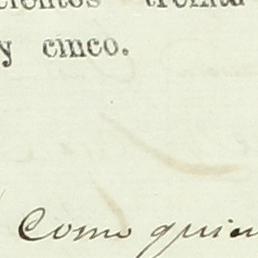 cientos treinta
y cinco.
Como quien